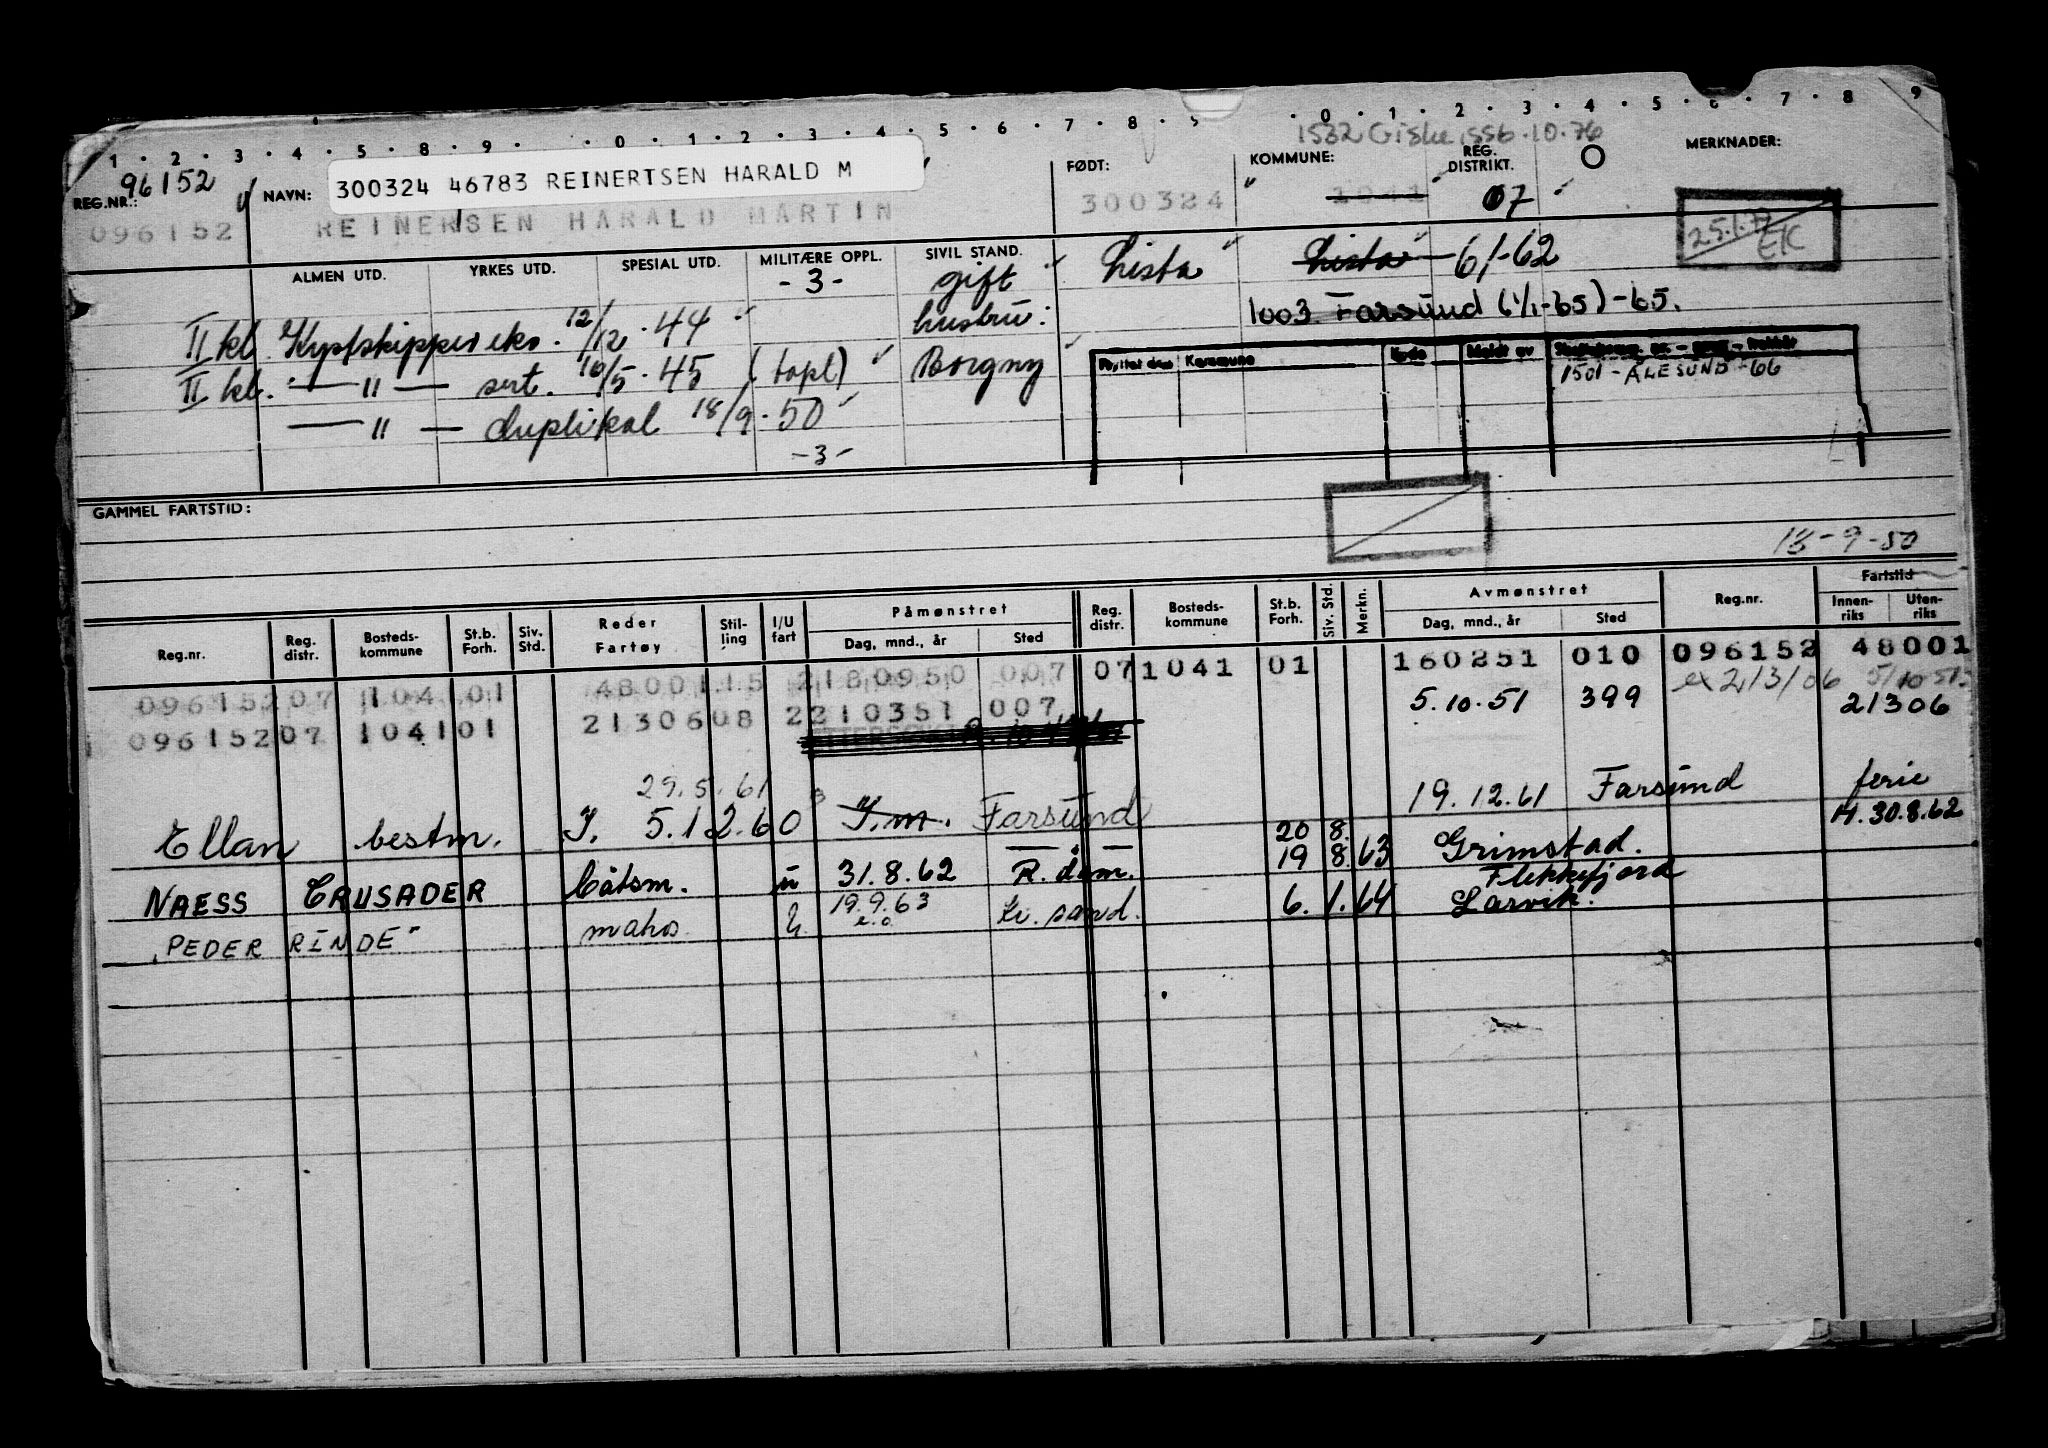 1 . 2 . 3 . 4 . 5 . 8 . 9 . . 0 . 1 . 2 . 3 . 4 . 5 . 6 . 7 . 8 . 9 . 0 . 1 . 2 . 3 . 4 . 5 . 6 . 7 . 8 . 9
1532 Giske 1556.10.76
REG.NR.: 96152 NAVN: 300324 46783 REINERTSEN HARALD M FØDT: KOMMUNE: REG. DISTRIKT. O MERKNADER:
096152 REINERSEN HARALD MARTIN 300324 1041 07
25.1.77 EK
ALMEN UTD. YRKES UTD. SPESIAL UTD. MILITÆRE OPPL. SIVIL STAND.
-3- gift Lista Lista 61-62
II kl. Kystskipper eks. 12/12.44 hustru: 1003 Farsund (1/1-65)-65.
II kl. — " — sert. 16/5.45 (tapt) Borgny
Flyttet den Kommune Kode Meldt av
1501 - ÅLESUND -66
— " — duplikat 18/9.50
-3-
GAMMEL FARTSTID:
18-9-50
Reg.nr. Reg. distr. Bosteds- kommune St.b. Forh. Siv. Std. Reder Fartøy Stil- ling I/U fart Påmønstret Dag, mnd., år Sted Reg. distr. Bosteds- kommune St.b. Forh. Siv. Std. Merkn. Avmønstret Dag, mnd., år Sted Reg.nr. Fartstid Innen- riks Uten- riks
09615207 104101 4800115 2180950 007 07 1041 01 160251 010 096152 48001
ex 213/06 5/10 51.
09615207 104101 2130608 2210351 007 5.10.51 399 21306
29.5.61
Ellan bestm. I. 5.12.60 I.m. Farsund 19.12.61 Farsund ferie
H. 30.8.62
20 8.
NAESS CRUSADER båtsm. u 31.8.62 R.dam. 19 8.63 Grimstad.
Flekkefjord
"PEDER RINDE" mahs 19.9.63 e.o Kr.sand. 6.1.64 Larvik.